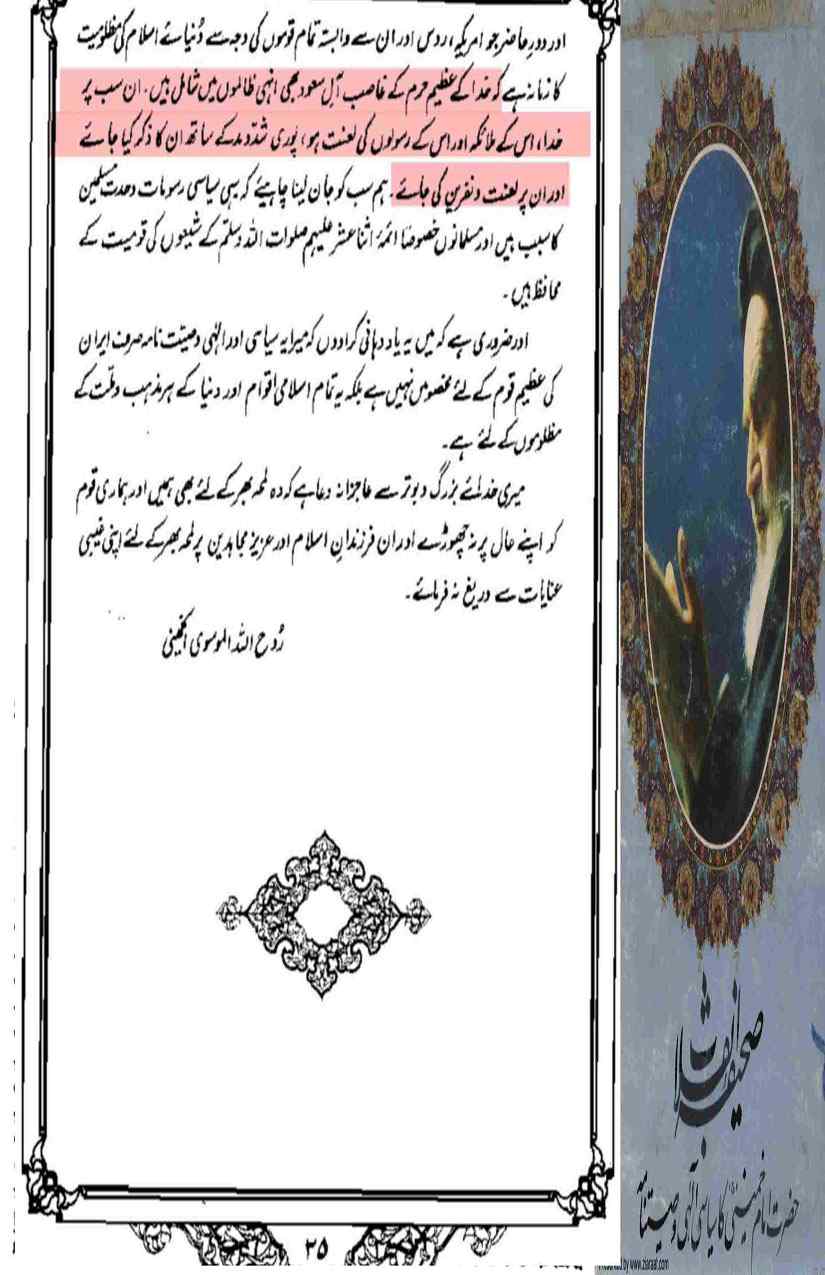 اور دورِ حاضر جو امریکہ، روس اور ان سے وابستہ تمام قوموں کی وجہ سے دُنیائے اسلام کی مظلومیت
کا زمانہ ہے کہ خدا کے عظیم حرم کے غاصب آلِ سعود بھی انہی ظالموں میں شامل ہیں۔ ان سب پر
خدا، اس کے ملائکہ اور اس کے رسولوں کی لعنت ہو، پوری شدّومد کے ساتھ ان کا ذکر کیا جائے
اور ان پر لعنت و نفرین کی جائے۔ ہم سب کو جان لینا چاہیئے کہ یہی سیاسی رسومات وحدتِ مسلمین
کا سبب ہیں اور مسلمانوں خصوصاً ائمۂ اثنا عشر علیہم صلوات اللہ وسلّم کے شیعوں کی قومیت کے
محافظ ہیں۔
اور ضروری ہے کہ میں یہ یاد دہانی کرادوں کہ میرا یہ سیاسی اور الٰہی وصیّت نامہ صرف ایران
کی عظیم قوم کے لئے مخصوص نہیں ہے بلکہ یہ تمام اسلامی اقوام اور دنیا کے ہر مذہب و ملّت کے
مظلوموں کے لئے ہے۔
میری خدائے بزرگ و برتر سے عاجزانہ دعا ہے کہ وہ لمحہ بھر کے لئے بھی ہمیں اور ہماری قوم
کو اپنے حال پر نہ چھوڑے اور ان فرزندانِ اسلام اور عزیز مجاہدین پر لمحہ بھر کے لئے اپنی غیبی
عنایات سے دریغ نہ فرمائے۔
رُوح اللہ الموسوی الخمینی
۲۵
صحیفۂ انقلاب
حضرت امام خمینیؒ کا سیاسی الٰہی وصیت نامہ
by www.ziaraat.com